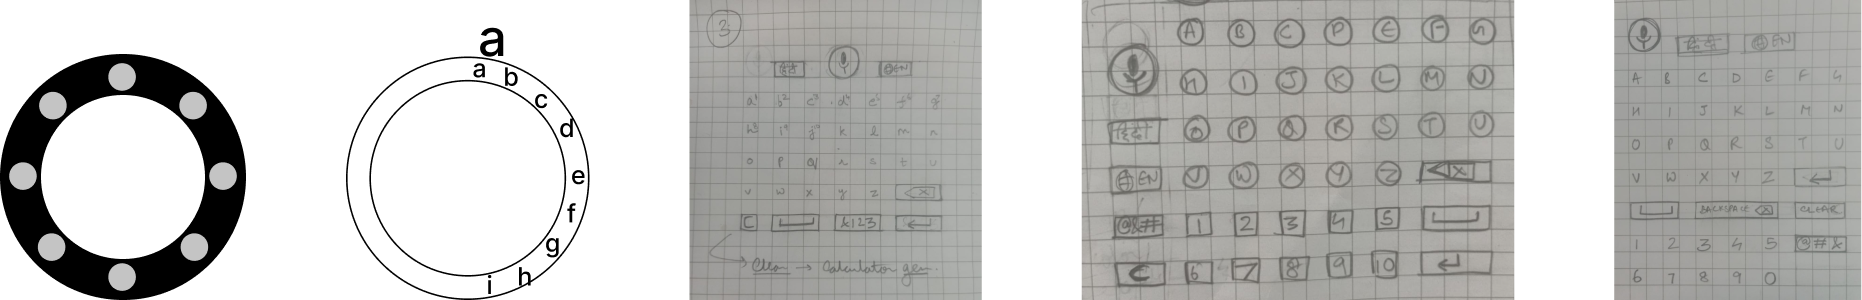 a
a
b
c
d
e
f
g
h
i
3
EN
a b c d e f g
h i j k l m n
o p q r s t u
v w x y z X
C &123
Clear → Calculator gen.
A B C D E F G
H I J K L M N
O P Q R S T U
EN V W X Y Z X
@&# 1 2 3 4 5
C 6 7 8 9 10
EN
A B C D E F G
H I J K L M N
O P Q R S T U
V W X Y Z
BACKSPACE X CLEAR
1 2 3 4 5 @#&
6 7 8 9 0